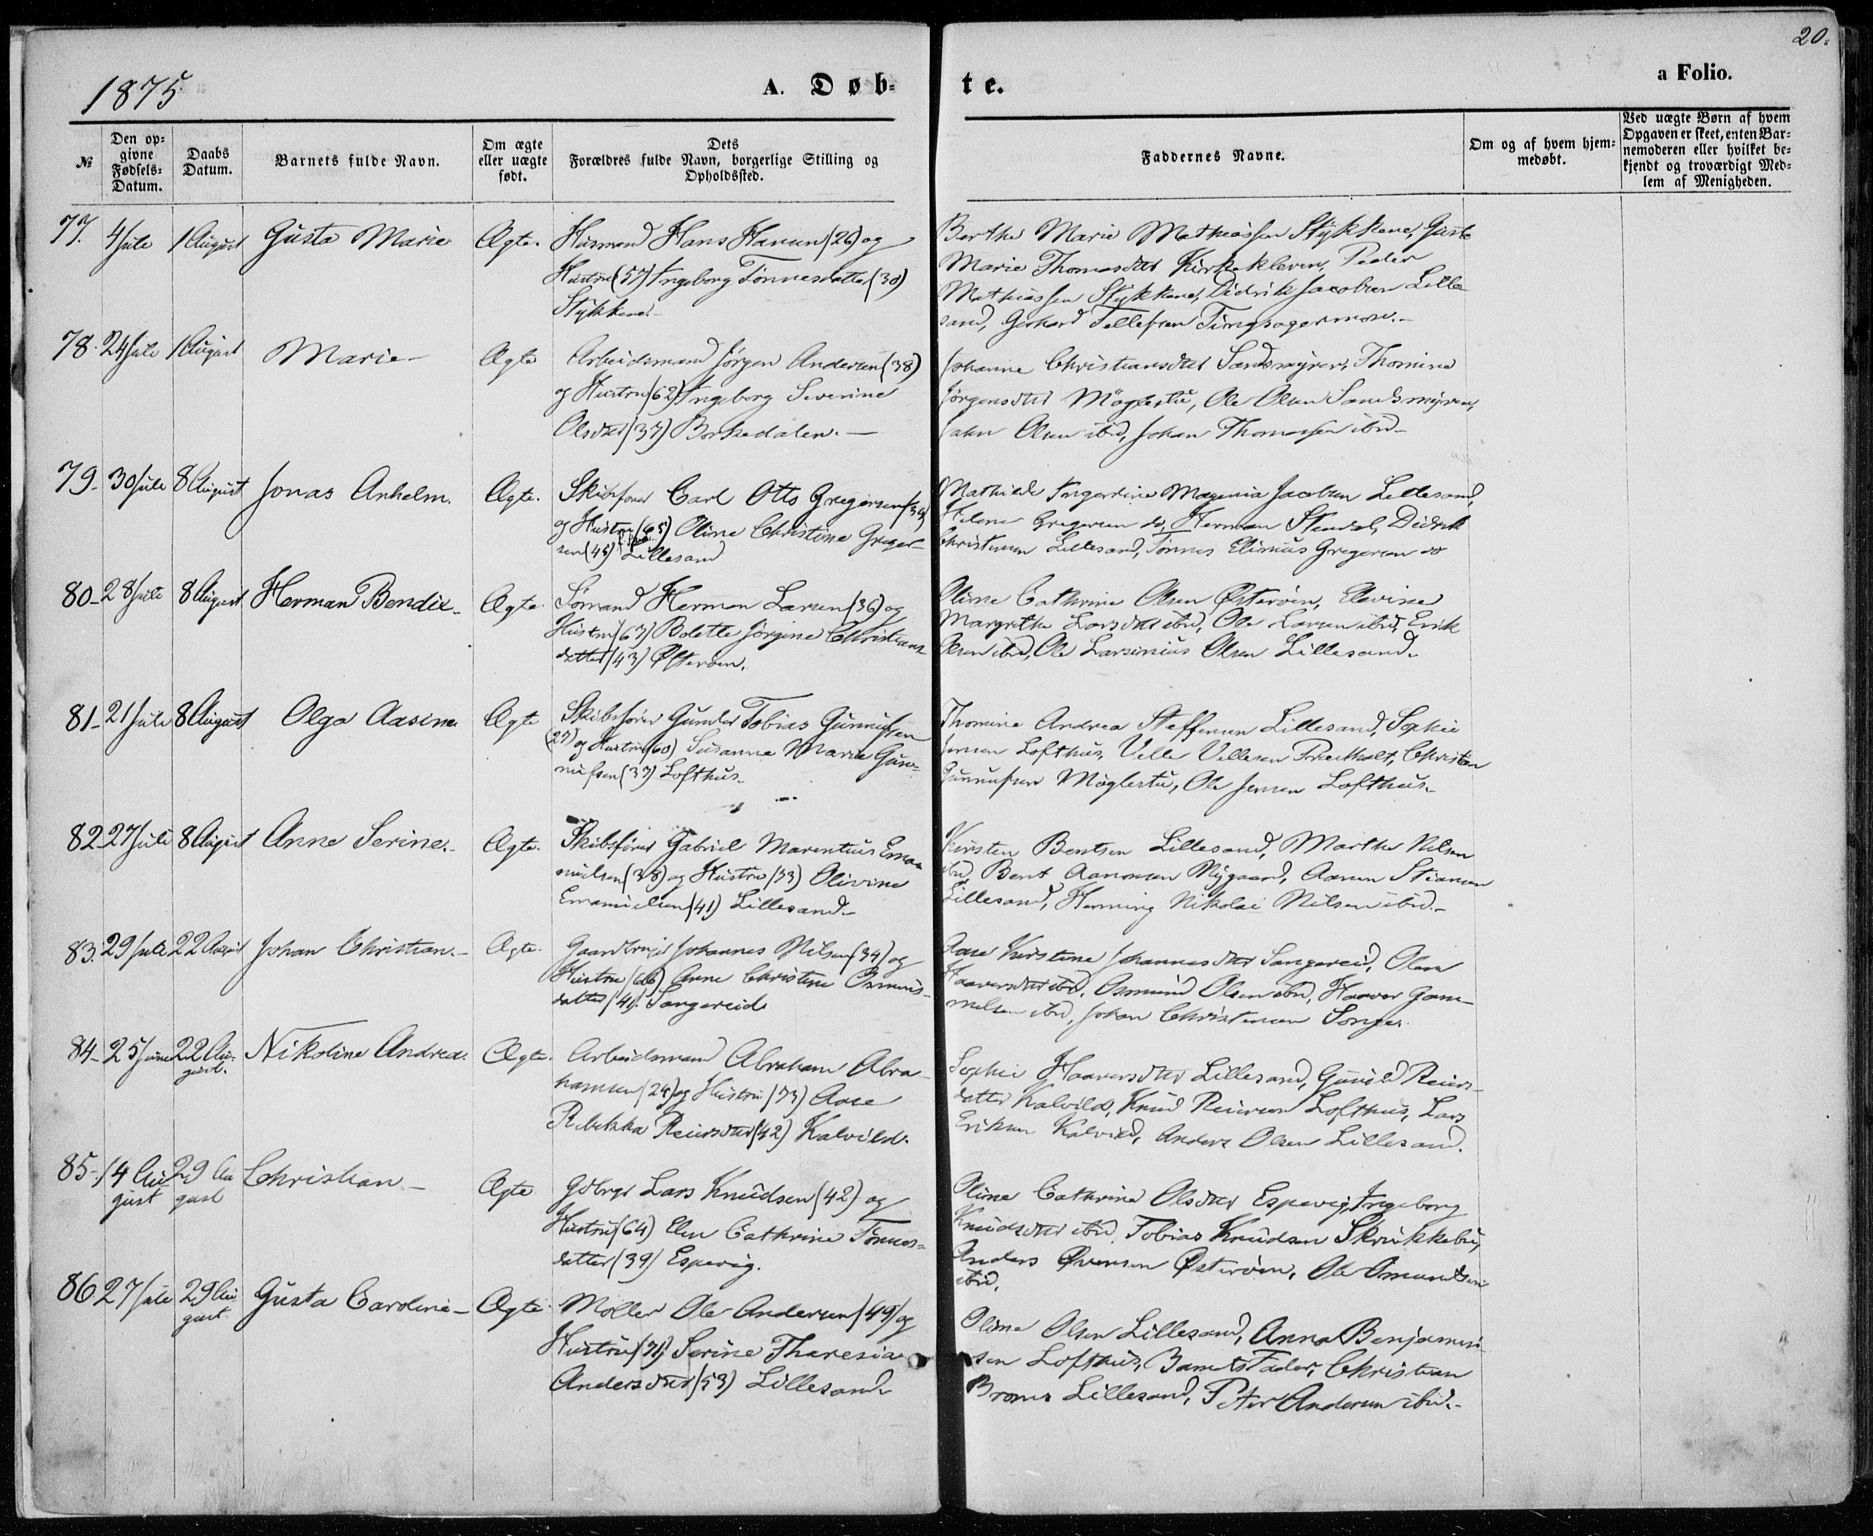 20.
1875
A. Døb-
te.
a Folio.
№
Den op-
givne
Fødsels-
Datum.
Daabs
Datum.
Barnets fulde Navn.
Om ægte
eller uægte
født.
Dets
Forældres fulde Navn, borgerlige Stilling og
Opholdssted.
Faddernes Navne.
Om og af hvem hjem-
medøbt.
Ved uægte Børn af hvem
Opgaven er skeet, enten Bar-
nemoderen eller hvilket be-
kjendt og troværdigt Med-
lem af Menigheden.
77. 4 Juli 1 August Gusta Marie Ægte. Husmand Hans Hansen (26) og
Hustru (57) Ingeborg Tønnesdatter (30)
Stykkene.
Berthe Marie Mathiassen Stykkene, Guste
Marie Thomasdtr Kirkekleven, Peder
Mathiassen Stykkene, Didrik Jacobsen Lille
sand, Gerhard Tellefsen Tingsagermoen.
78. 24 Juli 1 August Marie Ægte Arbeidsmand Jørgen Andersen (38)
og Hustru (62) Ingeborg Severine
Olsdtr (37) Borkedalen.
Johanne Christiansdtr Sandsmyren, Thomine
Jørgensdtr Møglestu, Ole Olsen Sandsmyren,
John Olsen ibid, Johan Thomassen ibid
79. 30 Juli 8 August Jonas Anhelm. Ægte. Skibsfører Carl Otto Gregersen (39)
og Hustru (65) Oline Christine Greger-
sen (45) Lillesand
Mathilde Ingerdine Magenia Jacobsen Lillesand,
Helene Gregersen do, Herman Stendal, Didrik
Christensen Lillesand, Tønnes Elinius Gregersen do
80. 28 Juli 8 August Herman Bendix. Ægte. Sømand Herman Larsen (36) og
Hustru (67) Bolette Jørgine Christians
datter (43) Østerøen.
Oline Cathrine Olsen Østerøen, Elevine
Margrethe Larsdtr ibid, Ole Larsen ibid, Erik
Olsen ibid, Ole Larsinius Olsen Lillesand.
81. 21 Juli 8 August Olga Aasine Ægte Skibsfører Gunder Tobias Gunnufsen
(27) og Hustru (60) Susanne Marie Gun-
nufsen (37) Lofthus.
Thomine Andrea Steffensen Lillesand, Sophie
Jensen Lofthus, Velle Vellesen Præstholt, Christen
Gunnufsen Møglestu, Ole Jensen Lofthus.
82. 27 Juli 8 August Anne Serine. Ægte. Skibsfører Gabriel Marentius Eman
uelsen (38) og Hustru (33) Olivine
Emanuelsen (41) Lillesand.
Kirsten Bentsen Lillesand, Marthe Nilsen
ibid, Bent Aanonsen Nygaard, Aanen Stiansen
Lillesand, Henning Nikolai Nilsen ibid.
83. 29 Juli 22 August Johan Christian. Ægte. Gaardbruger Johannes Nilsen (34) og
Hustru (66) Anne Christine Osmuns-
datter (40) Sangereid.
Aase Kirstine Johannesdtr Sangereid, Olene
Haaversdtr ibid, Osmund Olsen ibid, Haaver Gom-
melsen ibid, Johan Christensen Songe.
84. 25 Juni 22 Au-
gust. Nikoline Andrea. Ægte. Arbeidsmand Abraham Abra-
hamsen (24) og Hustru (73) Aase
Rebekka Reiersdtr (42) Kalvild.
Sophie Haaversdtr Lillesand, Gunild Reiers-
datter Kalvild, Knud Reiersen Lofthus, Lars
Eriksen Kalvild, Anders Olsen Lillesand.
85. 14 Au
gust 29 Au
gust Christian Ægte Gdbrgr Lars Knudsen (42) og
Hustru (64) Elen Cathrine Tønnes-
datter (39) Espevig.
Oline Cathrine Olsdtr Espevig, Ingeborg
Knudsdtr ibid, Tobias Knudsen Skrukkebu,
Anders Evensen Østerøen, Ole Omundsen
ibid.
86. 27 Juli 29 Au
gust Gusta Caroline Ægte Møller Ole Andersen (49) og
Hustru (71) Serine Theresia
Andersdtr (53) Lillesand.
Oline Olsen Lillesand, Anna Benjamin-
sen Lofthus, Barnets Fader, Christian
Broms Lillesand, Peter Andersen ibid.